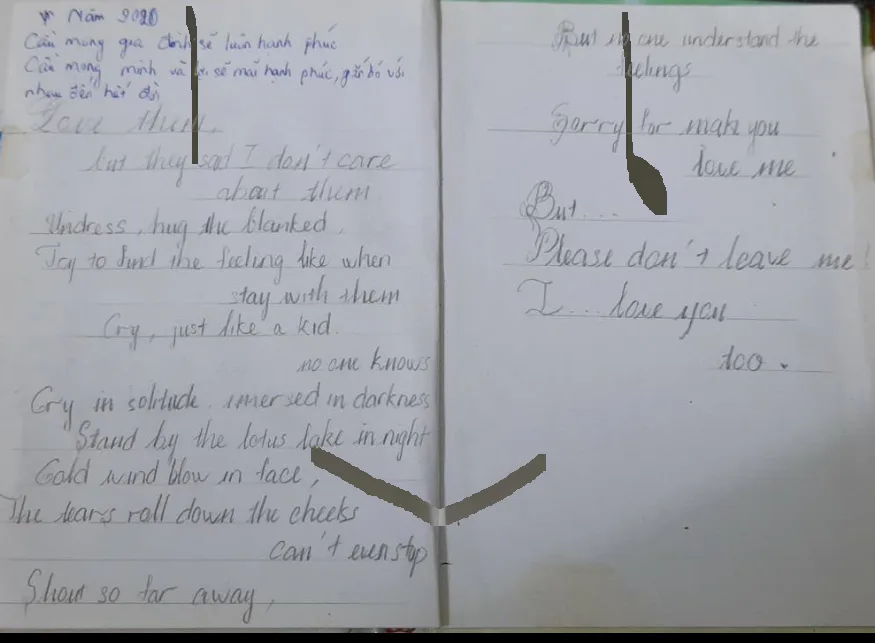 Năm 2020
Cầu mong gia đình sẽ luôn hạnh phúc
Cầu mong mình và sẽ mãi hạnh phúc, gắn bó với
nhau đến hết đời
Love them,
but they said I don't care
about them
Undress, hug the blanked,
Try to find the feeling like when
stay with them
Cry, just like a kid.
no one knows
Cry in solitude, imersed in darkness
Stand by the lotus lake in night
Cold wind blow in face,
The tears roll down the cheeks
can't even stop
Shout so far away,
But no one understand the
feelings
Sorry for make you
love me
But...
Please don't leave me!
I... love you
too.